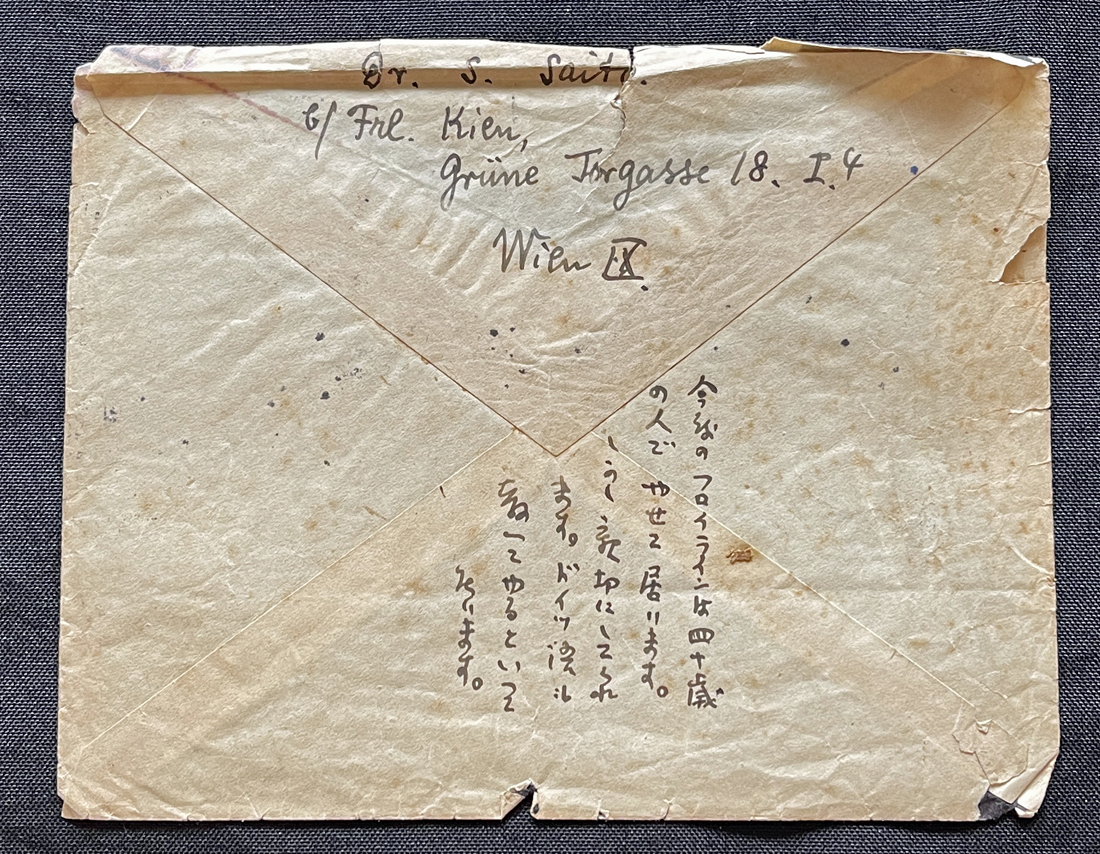 Dr. S. Saito.
b/ Frl. Kien,
Grüne Torgasse 18. I.4
Wien IX.
今度のフロイラインは四十歳
の人で やせて居ります。
しかし親切にしてくれ
ます。ドイツ語も
教へてやるといつて
居ります。